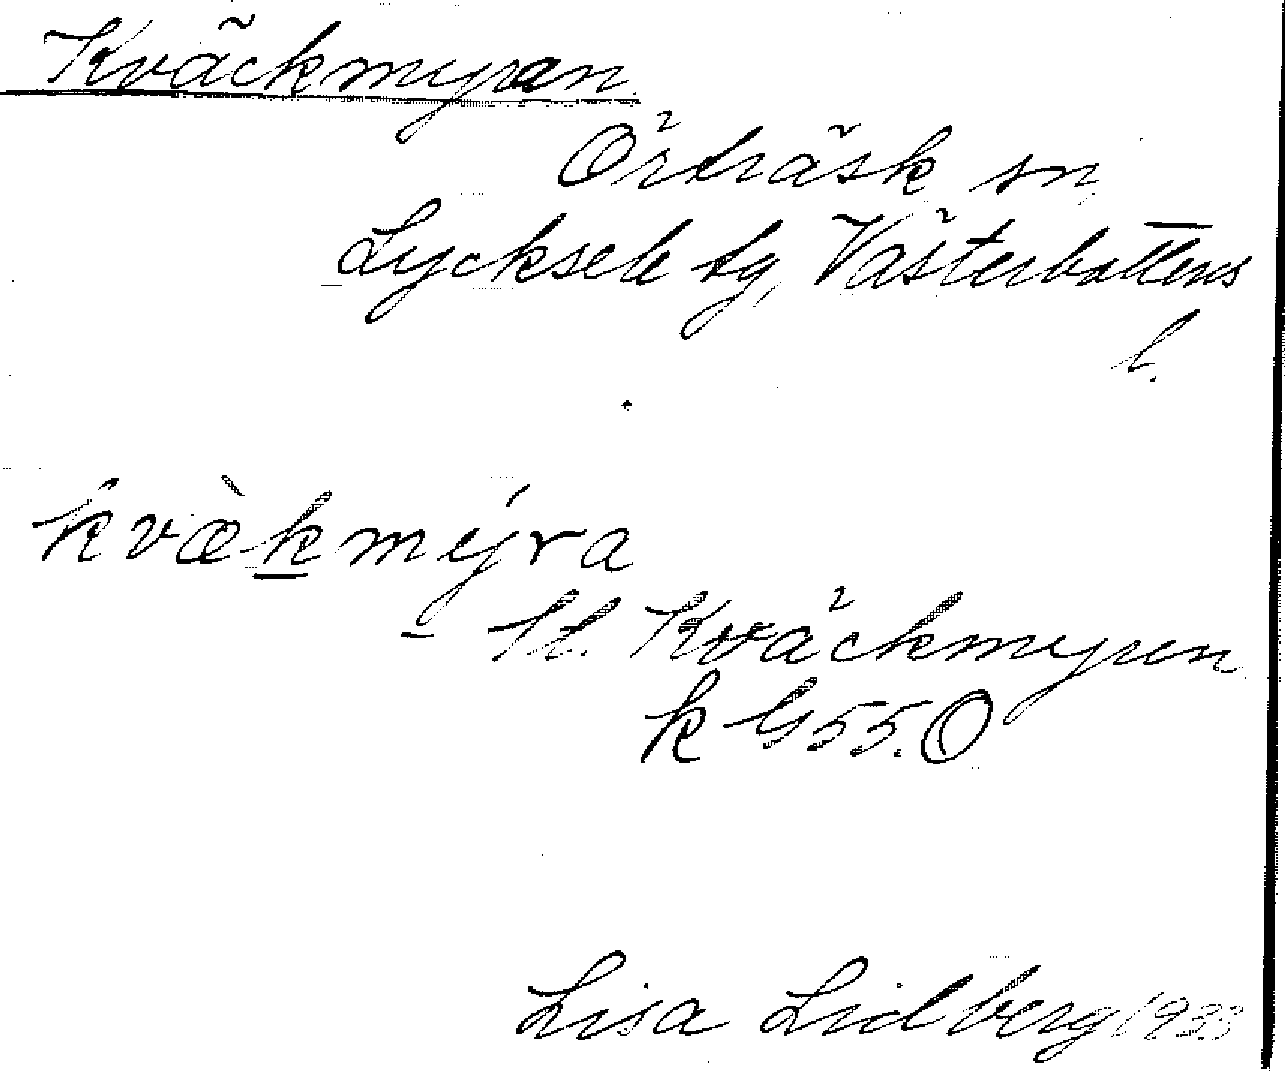 Kväckmyran
Örträsk sn,
Lycksele tg, Västerbottens
l.
kvæ̀kmýra
– St. Kväckmyren
k G 55. O
Lisa Lidberg 1933